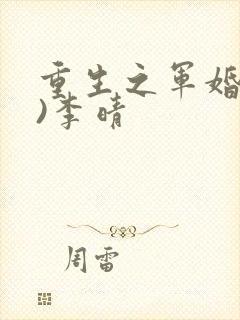 重生之军婚
)李晴
周雷